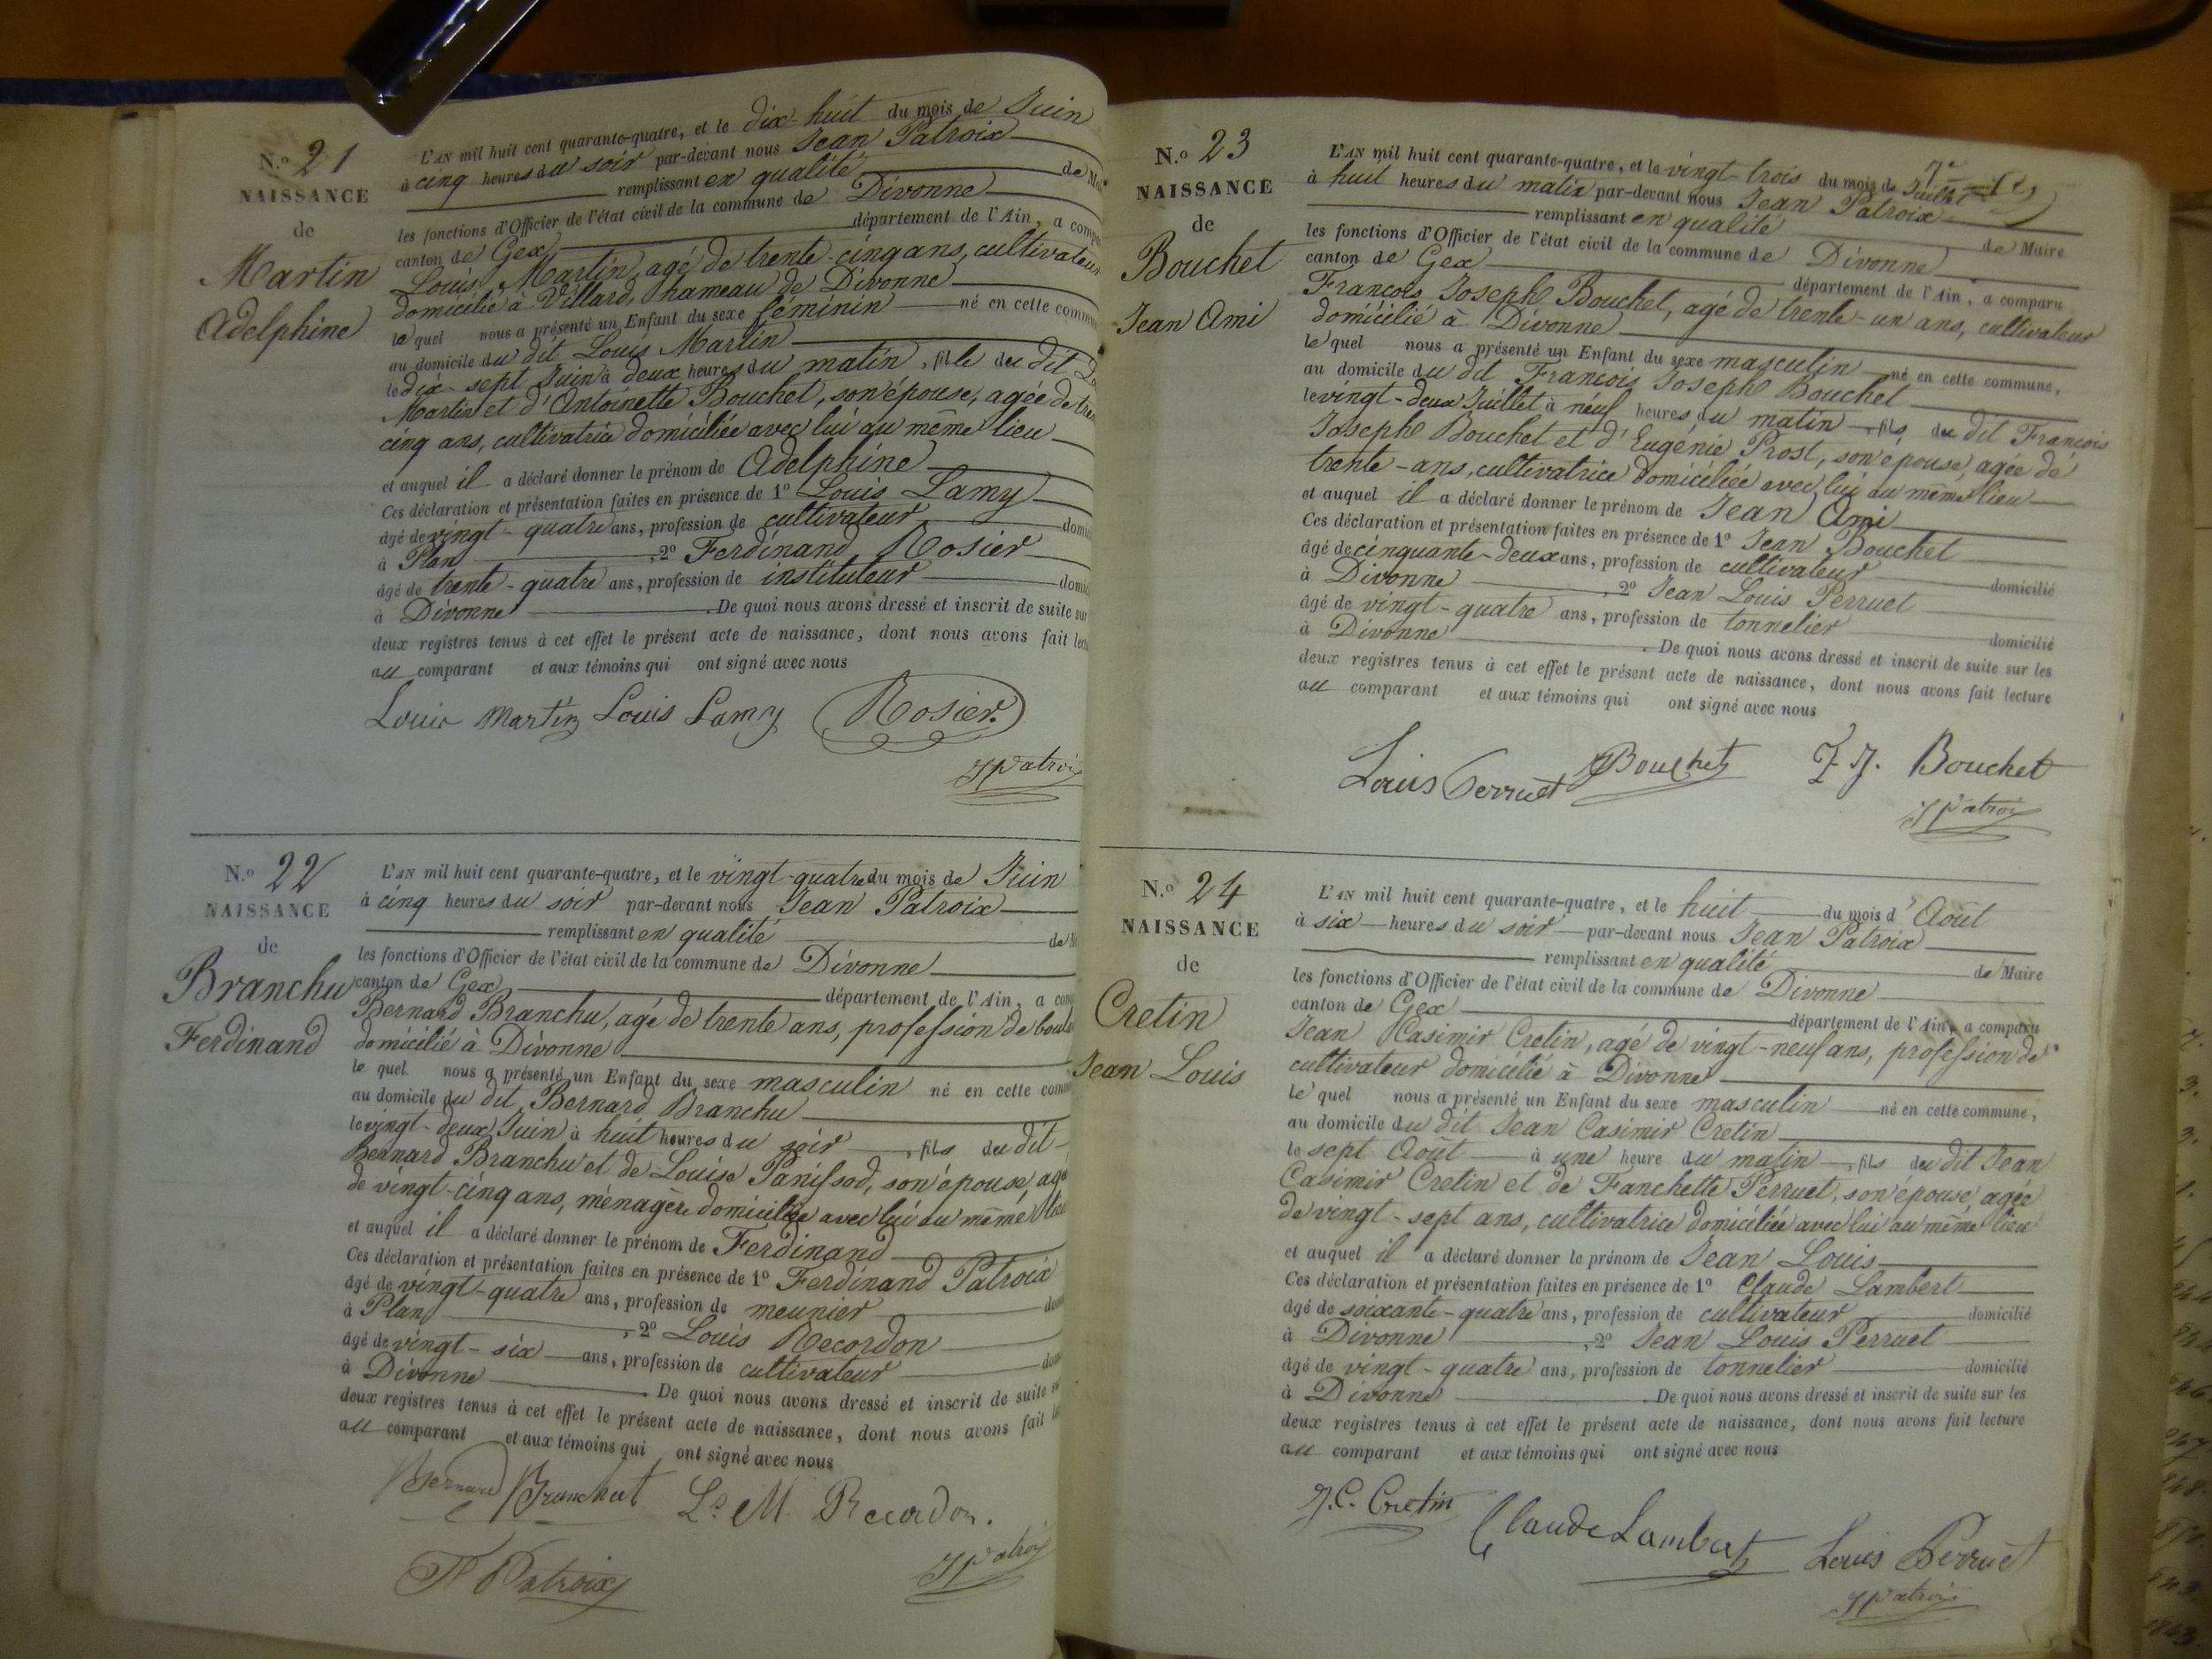 N.º 21
NAISSANCE
de
Martin
Adelphine
L'AN mil huit cent quarante-quatre, et le dix-huit du mois de Juin
à cinq heures du soir par-devant nous Jean Patroix
remplissant en qualité de
les fonctions d'Officier de l'état civil de la commune de Divonne
canton de Gex département de l'Ain, a
Louis Martin, agé de trente-cinq ans, cultivateur
domicilié à Villard, hameau de Divonne
le quel nous a présenté un Enfant du sexe féminin né en cette
au domicile du dit Louis Martin
le dix-sept Juin à deux heures du matin, fille du dit
Martin et d'Antoinette Bouchet, son épouse, agée de
cinq ans, cultivatrice domiciliée avec lui au même lieu
et auquel il a déclaré donner le prénom de Adelphine
Ces déclaration et présentation faites en présence de 1º Louis Lamy
âgé de vingt-quatre ans, profession de cultivateur
à Plan, 2º Ferdinand Rosier
âgé de trente-quatre ans, profession de instituteur
à Divonne. De quoi nous avons dressé et inscrit de suite sur
deux registres tenus à cet effet le présent acte de naissance, dont nous avons fait
au comparant et aux témoins qui ont signé avec nous
Louis Martin Louis Lamy Rosier.
JPatroix
N.º 22
NAISSANCE
de
Branchu
Ferdinand
L'AN mil huit cent quarante-quatre, et le vingt-quatre du mois de Juin
à cinq heures du soir par-devant nous Jean Patroix
remplissant en qualité de
les fonctions d'Officier de l'état civil de la commune de Divonne
canton de Gex département de l'Ain, a
Bernard Branchu, agé de trente ans, profession de
domicilié à Divonne
le quel nous a présenté un Enfant du sexe masculin né en cette
au domicile du dit Bernard Branchu
le vingt-deux Juin à huit heures du soir, fils du dit
Bernard Branchu et de Louise Panissod, son épouse, agée
de vingt-cinq ans, ménagère domiciliée avec lui au même lieu
et auquel il a déclaré donner le prénom de Ferdinand
Ces déclaration et présentation faites en présence de 1º Ferdinand Patroix
âgé de vingt-quatre ans, profession de meunier
à Plan, 2º Louis Recordon
âgé de vingt-six ans, profession de cultivateur
à Divonne. De quoi nous avons dressé et inscrit de suite
deux registres tenus à cet effet le présent acte de naissance, dont nous avons fait
au comparant et aux témoins qui ont signé avec nous
Bernard Branchut Ls. M. Recordon.
F Patroix JPatroix
N.º 23
NAISSANCE
de
Bouchet
Jean Ami
L'AN mil huit cent quarante-quatre, et le vingt-trois du mois de Juillet
à huit heures du matin par-devant nous Jean Patroix
remplissant en qualité de Maire
les fonctions d'Officier de l'état civil de la commune de Divonne
canton de Gex département de l'Ain, a comparu
François Joseph Bouchet, agé de trente-un ans, cultivateur
domicilié à Divonne
le quel nous a présenté un Enfant du sexe masculin né en cette commune,
au domicile du dit François Joseph Bouchet
le vingt-deux Juillet à neuf heures du matin, fils du dit François
Joseph Bouchet et d'Eugénie Prost, son épouse, agée de
trente-ans, cultivatrice domiciliée avec lui au même lieu
et auquel il a déclaré donner le prénom de Jean Ami
Ces déclaration et présentation faites en présence de 1º Jean Bouchet
âgé de cinquante-deux ans, profession de cultivateur domicilié
à Divonne, 2º Jean Louis Perruet
âgé de vingt-quatre ans, profession de tonnelier domicilié
à Divonne. De quoi nous avons dressé et inscrit de suite sur les
deux registres tenus à cet effet le présent acte de naissance, dont nous avons fait lecture
au comparant et aux témoins qui ont signé avec nous
Louis Perruet Bouchet F J. Bouchet
JPatroix
N.º 24
NAISSANCE
de
Cretin
Jean Louis
L'AN mil huit cent quarante-quatre, et le huit du mois d'Août
à six heures du soir par-devant nous Jean Patroix
remplissant en qualité de Maire
les fonctions d'Officier de l'état civil de la commune de Divonne
canton de Gex département de l'Ain, a comparu
Jean Casimir Cretin, agé de vingt-neuf ans, profession de
cultivateur domicilié à Divonne
le quel nous a présenté un Enfant du sexe masculin né en cette commune,
au domicile du dit Jean Casimir Cretin
le sept Août à une heure du matin, fils du dit Jean
Casimir Cretin et de Fanchette Perruet, son épouse agée
de vingt-sept ans, cultivatrice domiciliée avec lui au même lieu
et auquel il a déclaré donner le prénom de Jean Louis
Ces déclaration et présentation faites en présence de 1º Claude Lambert
âgé de soixante-quatre ans, profession de cultivateur domicilié
à Divonne, 2º Jean Louis Perruet
âgé de vingt-quatre ans, profession de tonnelier domicilié
à Divonne. De quoi nous avons dressé et inscrit de suite sur les
deux registres tenus à cet effet le présent acte de naissance, dont nous avons fait lecture
au comparant et aux témoins qui ont signé avec nous
J. C. Cretin Claude Lambert Louis Perruet
JPatroix